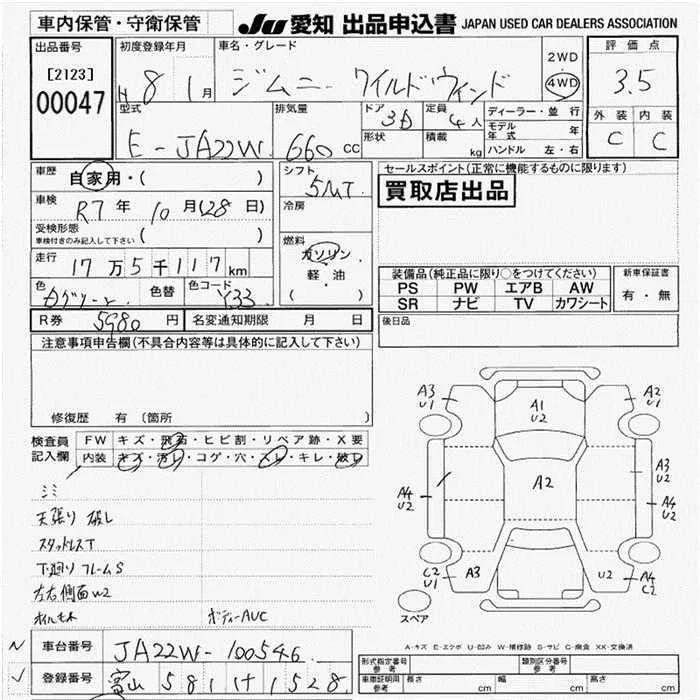 車内保管・守衛保管
JU 愛知 出品申込書 JAPAN USED CAR DEALERS ASSOCIATION
出品番号 初度登録年月 車名・グレード 評価点
[2123]
00047
H 8 1月 ジムニー ワイルドウィンド 2WD 4WD 3.5
型式 排気量 ドア 定員 ディーラー・並行 外装 内装
E-JA22W 660 CC 3D 4人 モデル年式 年 C C
形状 積載 kg ハンドル 左・右
車歴 自家用・( ) シフト 5MT セールスポイント(正常に機能するものに限ります)
車検 R7年10月(28日) 冷房 買取店出品
受検形態 ( )
車検付きのみ記入して下さい
走行 17万5千117km 燃料 ガソリン 軽・油 ( )
装備品(純正品に限り○をつけてください) 新車保証書
PS PW エアB AW 有・無
SR ナビ TV カワシート
色 色替 色コード Y33
R券 5980円 名変通知期限 月 日 後日品
注意事項申告欄(不具合内容等は具体的に記入して下さい)
修復歴 有 (箇所 )
検査員記入欄 FW キズ・飛石・ヒビ割・リペア跡・X要
内装 キズ・汚れ・コゲ・穴・スレ・キレ・破れ
シミ
天張り 破レ
スタッドレスT
下廻り フレームS
左右側面W2
オイルモレ ボディーAUC
A3 U1 A1 U2 A2 U1
A2 A3 U2
A4 U2 A4 U2
C2 U1 A3 U2 A4 C2
スペア
A-キズ E-エクボ U-凹み W-補修跡 S-サビ C-腐食 XX-交換済
車台番号 JA22W-100546
登録番号 富山 581 け 1528
形式指定番号 参考 類別区分番号 参考
車庫証明用 参考 長さ cm 幅 cm 高さ cm